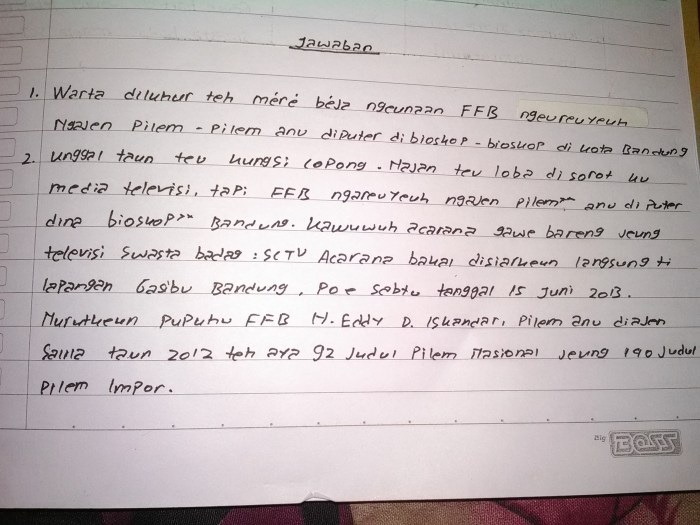 Jawaban
1. Warta diluhur teh méré béja ngeunaan FFB ngeureuyeuh
Ngajen Pilem - Pilem anu diputer di bioskop - bioskop di kota Bandung
2. unggal taun teu kungsi copong. Najan teu loba di sorot ku
media televisi, tapi FFB ngareuyeuh ngajen pilem" anu di puter
dina bioskop" Bandung. Kawuwuh acarana gawe bareng jeung
televisi Swasta badag : SCTV Acarana bakal disiarkeun langsung ti
lapangan Gasibu Bandung, Poe Sabtu tanggal 15 Juni 2013.
Nurutkeun PuPuhu FFB H. Eddy D. Iskandar, Pilem anu diajen
Salila taun 2012 teh aya 92 Judul Pilem Nasional jeung 190 Judul
Pilem Impor.
Big BOSS